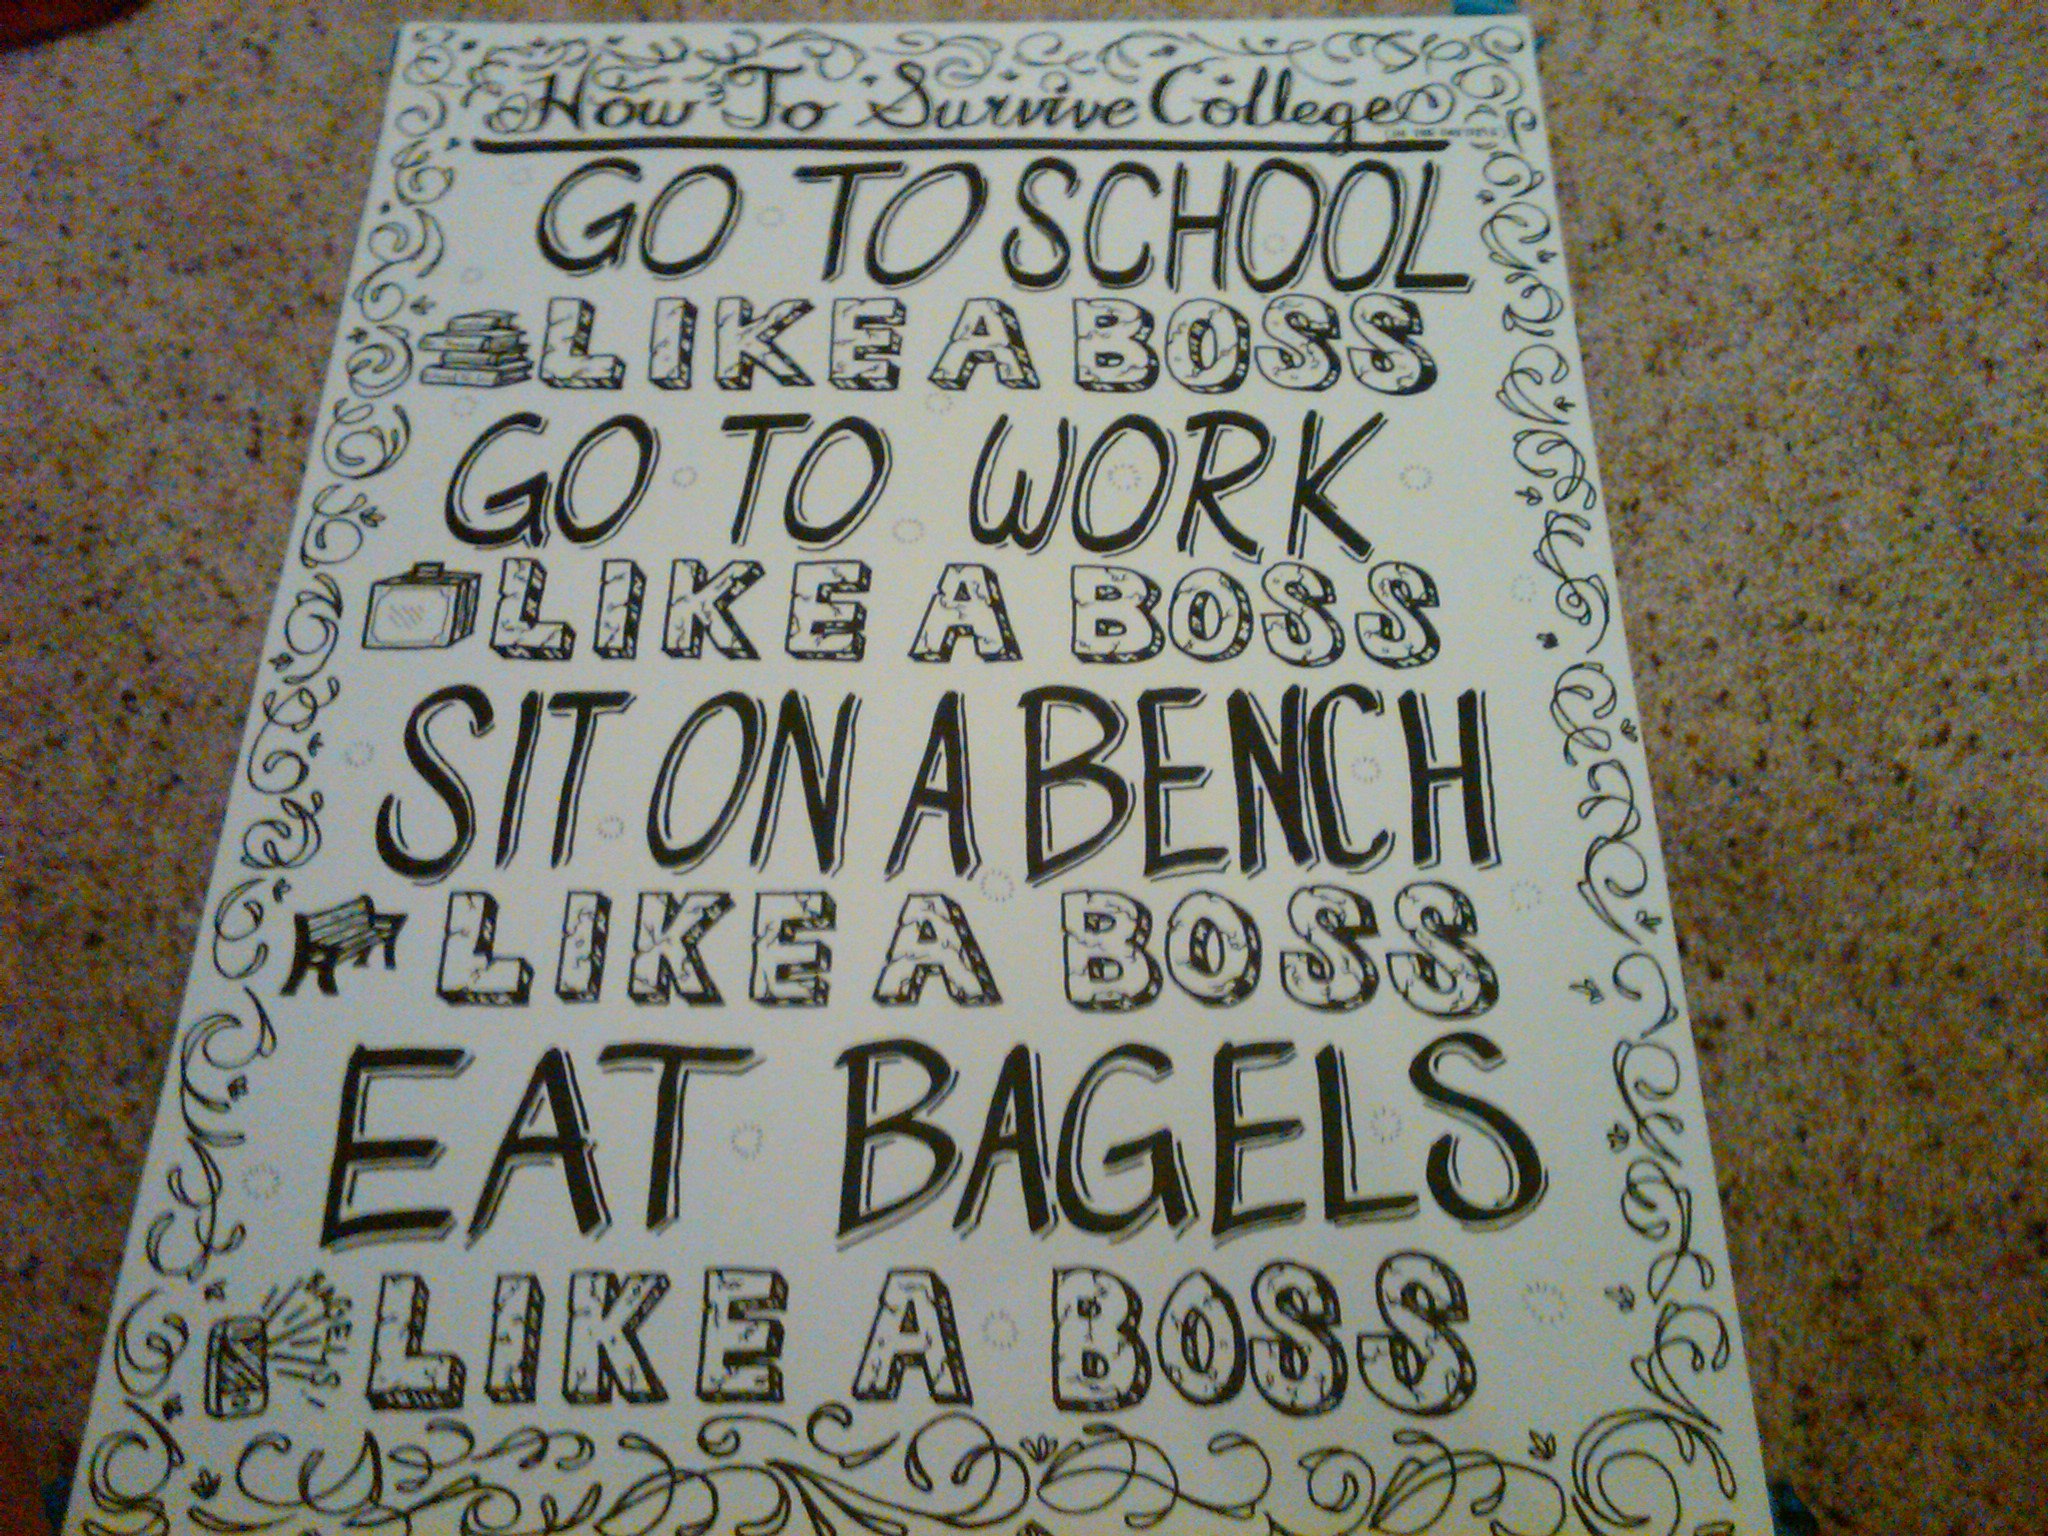 How To Survive College
GO TO SCHOOL
LIKE A BOSS
GO TO WORK
LIKE A BOSS
SIT ON A BENCH
LIKE A BOSS
EAT BAGELS
BAGELS
LIKE A BOSS